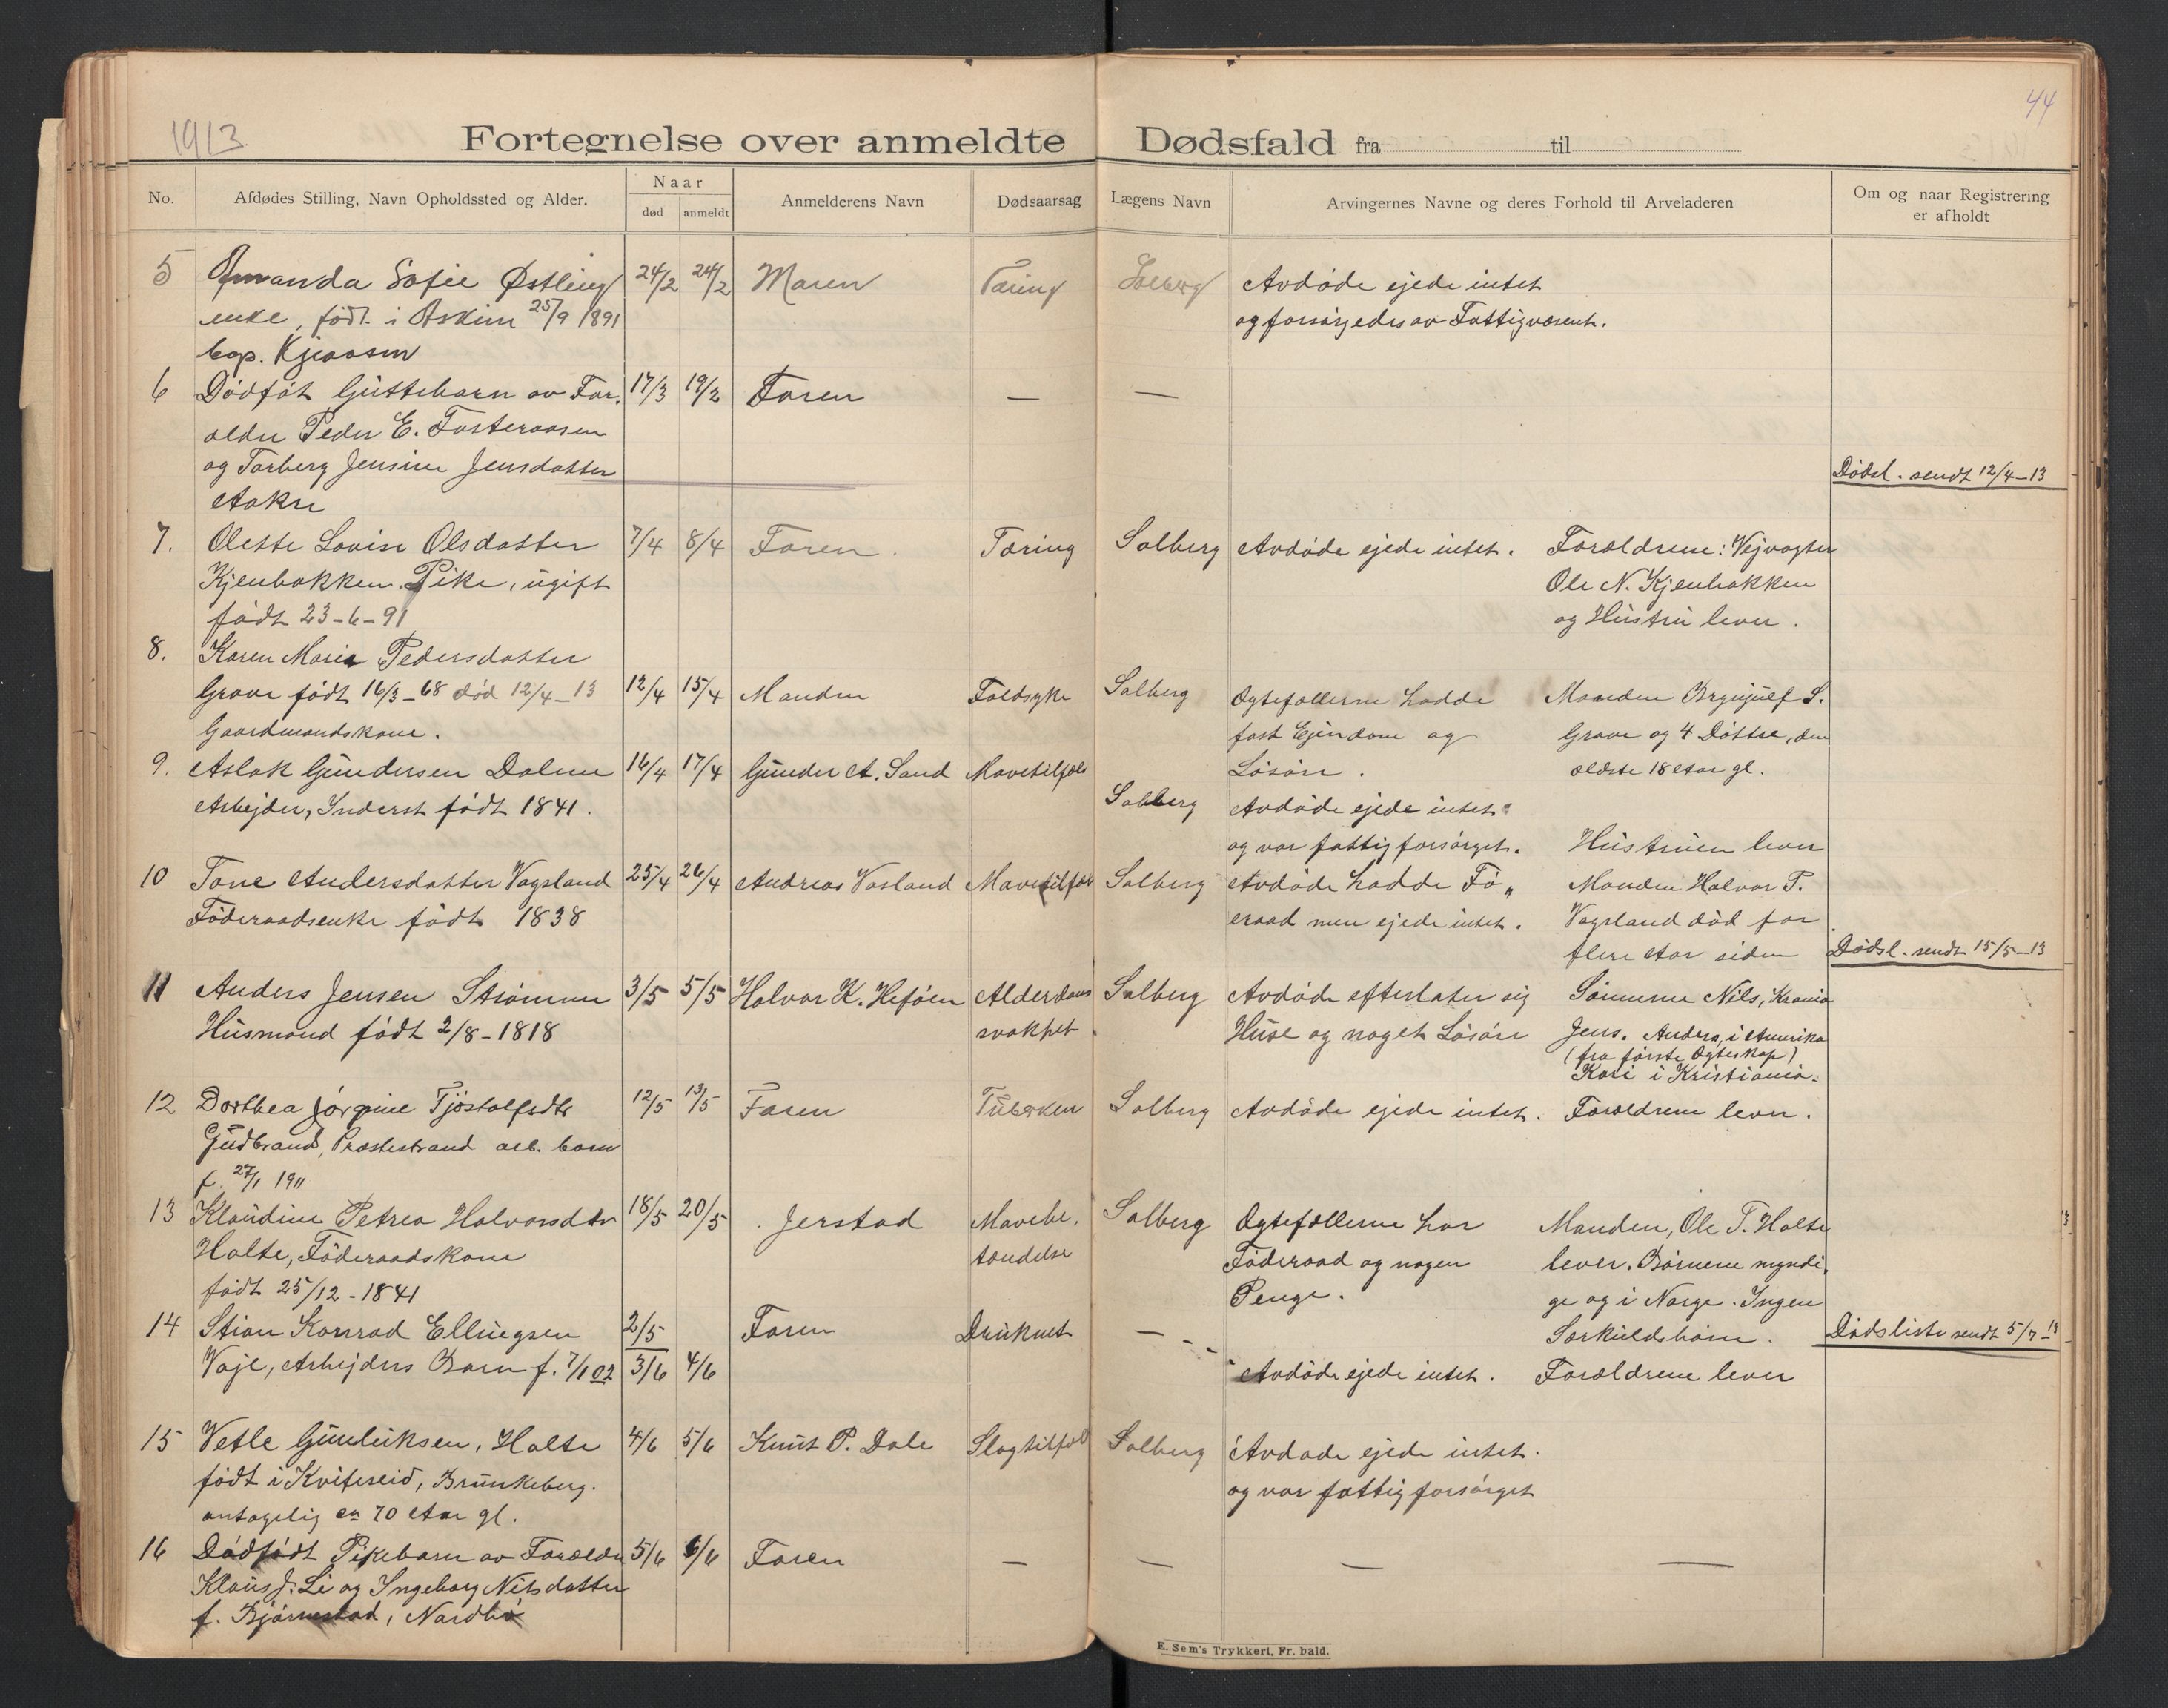 1913
44
Fortegnelse over anmeldte Dødsfald fra til
No.
Afdødes Stilling, Navn Opholdssted og Alder.
Naar
død
anmeldt
Anmelderens Navn
Dødsaarsag
Lægens Navn
Arvingernes Navne og deres Forhold til Arveladeren
Om og naar Registrering
er afholdt
5 Amanda Sofie Østling 24/2 24/2 Maren Tæring Solberg Avdøde ejede intet
enke, født i Askim 25/9 1891 og forsørjedes av Fattigvæsent.
bop. Kjeaasen
6 Dødføt Guttebarn av For. 17/3 19/3 Faren — —
ældre Peder E. Fosteraasen
og Torberg Jensine Jensdatter
Aakre
Dødsl. sendt 12/4–13
7. Olette Lovise Olsdatter 7/4 8/4 Faren. Tæring Solberg Avdøde ejede intet. Forældrene: Vejvogter
Kjenbakken. Pike, ugift Ole N. Kjenbakken
født 23-6-91 og Hustru lever.
8. Karen Marie Pedersdatter
Grave født 16/3–68 død 12/4–13 12/4 15/4 Manden Faldsyke Solberg Ogtefællerne hadde Manden Brynjulf S.
Gaardmandskone. fast Ejendom og Grave og 4 Døttre, den
Løsøre. ældste 18 Aar gl.
9. Aslak Gundersen Dalene 16/4 17/4 Gunder A. Sand Mavetilfæle
Arbejder, Inderst født 1841. Solberg Avdøde ejede intet
og var fattigforsørget. Hustruen lever
10 Tone Andersdatter Vagsland 25/4 26/4 Andreas Vasland Mavetilfæl Solberg Avdøde hadde Fø„ Manden Halvor T.
Føderaadsenke født 1838 eraad men ejede intet. Vagsland død for
flere Aar siden
Dødsl. sendt 15/5–13
11 Anders Jensen Strømme 3/5 5/5 Halvor K. Heføen Alderdoms Solberg Avdøde efterlater sig Sønnerne Nils, Kraniø
Husmand født 2/8-1818 svakhet Huse og noget Løsøre Jens. Anders, i Amerika
(fra første Ogteskap)
Kari i Kristiania.
12 Dorthea Jørgine Tjøstolfsdtr 12/5 13/5 Faren Tuberkul Solberg Avdøde ejede intet. Forældrene lever.
Gudbrand, Prestestrand arb. barn
f. 27/1 1911
13 Klaudine Petrea Halvorsdtr 18/5 20/5 Jerstad Mavebe. Solberg Ogtefællerne har Manden, Ole T. Holte
Holte, Føderaadskone tændelse Føderaad og nogen lever. Børnene myndi.
født 25/12-1841 Penge. ge og i Norge. Ingen
Særkuldsbørn.
14 Stian Konrad Ellingsen 2/5 Faren Druknet —
Dødsliste sendt 5/7–13
Vaje, Arbejders Barn f. 7/1 07 3/6 4/6 Avdøde ejede intet. Forældrene lever
15 Vetle Gunleiksen, Holte 4/6 5/6 Knut P. Dale Slagtilfæl Solberg Avdøde ejede intet.
født i Kviteseid, Brunkeberg. og var fattigforsørget
antagelig ca 70 Aar gl.
16 Dødfødt Pikebarn av Forældre 5/6 6/6 Faren — — — —
Klaus J. Li og Ingeborg Nilsdatter
f. Bjørnestad, Nordbø
E. Sem's Trykkeri, Fr. hald.